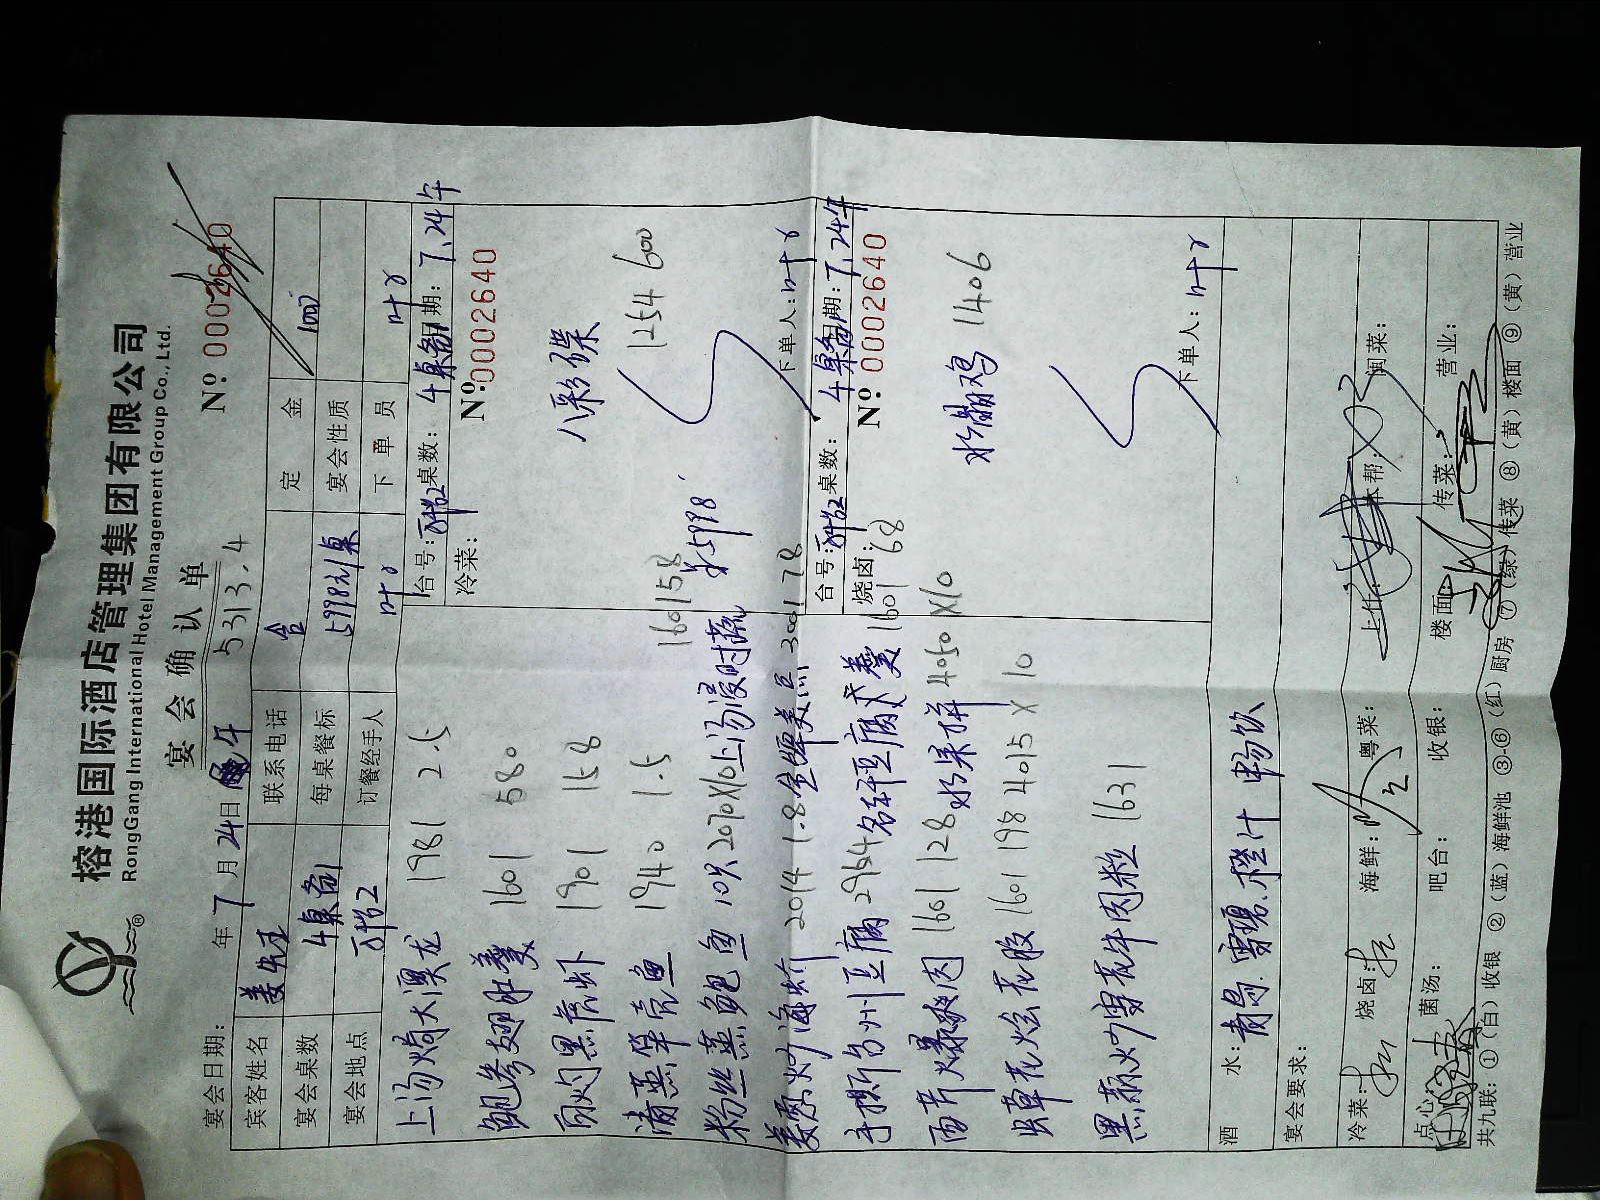 榕港国际酒店管理集团有限公司
RongGang International Hotel Management Group Co., Ltd.
宴会确认单
宴会日期： 年 7 月 24 日 午 5313.4 № 0002640
宾客姓名 姜先生 联系电话 定金 1000
宴会桌数 4桌备1 每桌餐标 5998元/桌 宴会性质
宴会地点 订餐经手人 叶 下单员 叶
上汤焗大澳龙 1981 2.5
鲍参翅肚羹 1601 580
白灼黑虎虾 1901 158
清蒸 鱼 1940 1.5
160158
粉丝蒸鲍鱼 10只 2070X10 上汤浸时蔬
姜葱炒海蛏 2014 1.8 美点 3001 78
手撕台州豆腐 2964 豆腐 羹 1601 68
西芹爆 肉 1601 128 水果拼 4050 X10
虫草花烩花胶 1601 198 4015 X 10
黑蒜炒雪花牛肉粒 1631
台号： 桌数： 4桌备1 日期： 7.24午
冷菜： № 0002640
八彩碟
1254 600
5998
下单人： 叶
台号： 桌数： 4桌备1 日期： 7.24午
烧卤： № 0002640
水晶鸡 1406
下单人： 叶
酒 水： 青岛.雪碧.橙汁 畅饮
宴会要求：
冷菜： 烧卤： 海鲜： 粤菜： 上什： 本帮： 闽菜：
点心： 菌汤： 吧台： 收银： 楼面： 传菜： 营业：
共九联：①（白）收银 ②（蓝）海鲜池 ③-⑥（红）厨房 ⑦（绿）传菜 ⑧（黄）楼面 ⑨（黄）营业